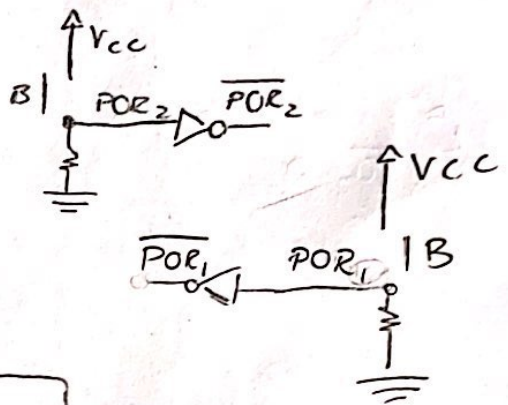 VCC
B
POR₂
P̅O̅R̅₂
VCC
P̅O̅R̅₁
POR₁
B